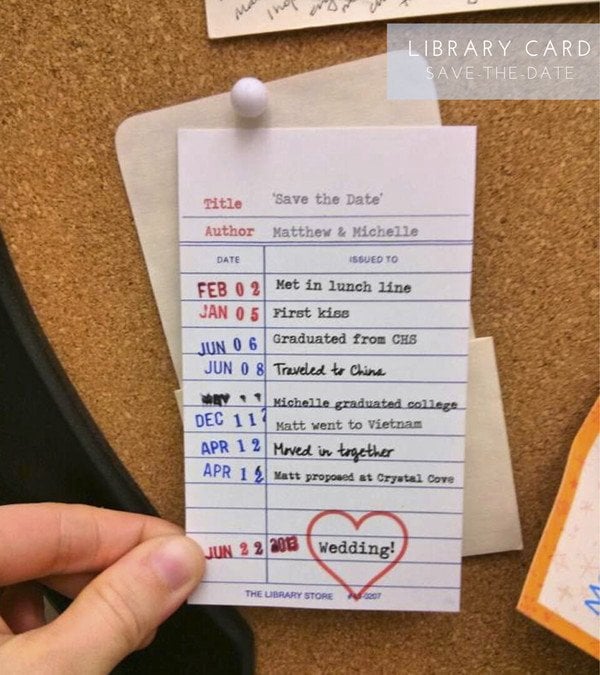 LIBRARY CARD
SAVE-THE-DATE
Title 'Save the Date'
Author Matthew & Michelle
DATE ISSUED TO
FEB 02 Met in lunch line
JAN 05 First kiss
JUN 06 Graduated from CHS
JUN 08 Traveled to China
Michelle graduated college
DEC 11 Matt went to Vietnam
APR 12 Moved in together
APR 12 Matt proposed at Crystal Cove
JUN 22 2013 Wedding!
THE LIBRARY STORE